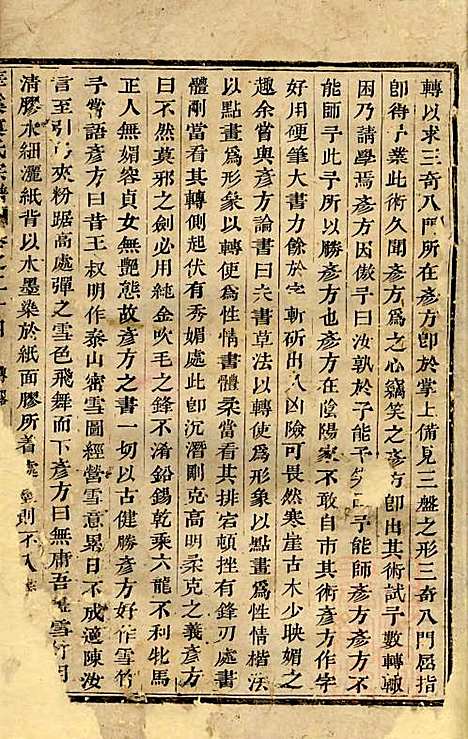 轉以求三奇八門所在彥方卽於掌上備見三盤之形三奇八門屈指
卽得予業此術久聞彥方爲之心竊笑之彥方卽出其術試予數轉輙
困乃請學焉彥方因儆予曰汝孰於子能予 予能師彥方彥方不
能師予此予所以勝彥方也彥方在陰陽家不敢自市其彥方作字
好用硬筆大書力餘於字 斬斫出入凶險可畏然寒崖古木少映媚之
趣余嘗與彥方論書曰大書草法以轉使爲形象以點畫爲性情楷法
以點畫爲形象以轉使爲性情書體柔當看其排宕頓挫有鋒刃處書
體剛當看其轉側起伏有秀媚處此卽沉潛剛克高明柔克之義彥方
曰不然莫邪之劍必用純金吹毛之鋒不淆鉛錫乾乘六龍不利牝馬
正人無媚容貞女無艷態故彥方之書一切以古健勝彥方好作雪竹
予嘗語彥方曰昔王叔明作泰山密雪圖經營雪意累日不成適陳汝
言至引 夾粉踞高處彈之雪色飛舞而下彥方曰無庸吾 雪竹用
清膠水細灑紙背以水墨染於紙面膠所着處 則不入